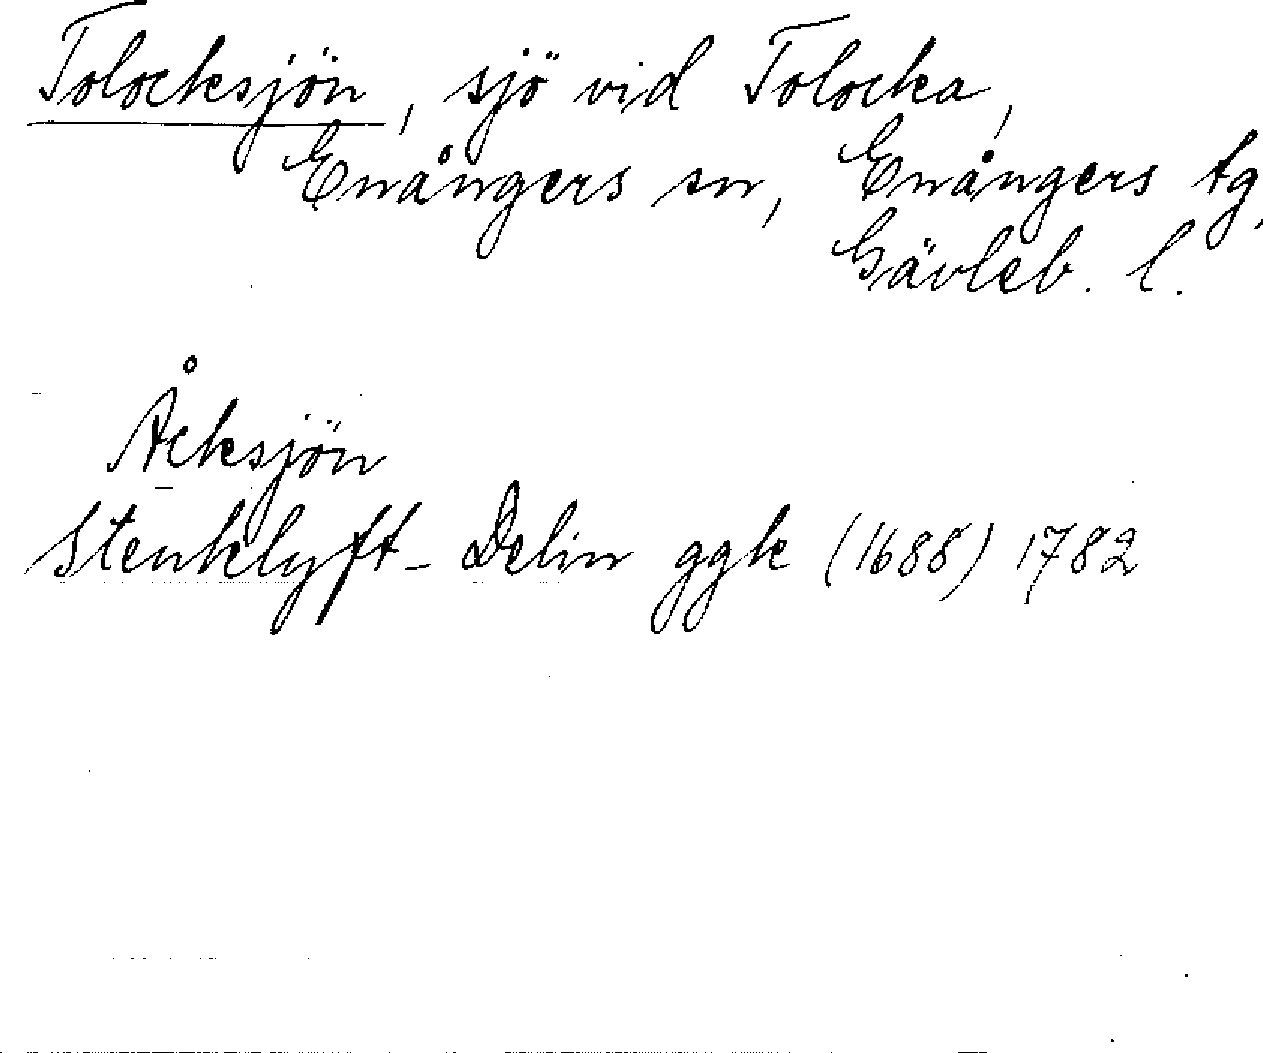 Tolocksjön, sjö vid Tolocka,
Enångers sn, Enångers tg,
Gävleb. l.
Åcksjön
Stenklyft-Delin ggk (1688) 1782